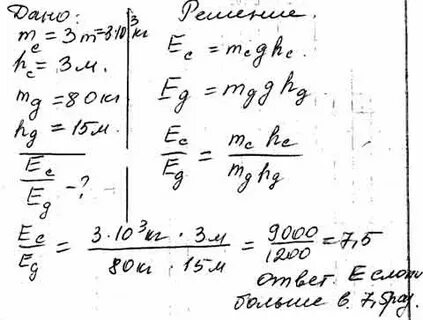 Дано:
m_c = 3т = 3·10³ кг
h_c = 3 м.
m_g = 80 кг
h_g = 15 м.
E_c/E_g - ?
Решение.
E_c = m_c g h_c.
E_g = m_g g h_g
E_c/E_g = m_c h_c / m_g h_g
E_c/E_g = 3·10³ кг · 3 м / 80 кг · 15 м = 9000/1200 = 7,5
Ответ. E слона
больше в 7,5 раз.